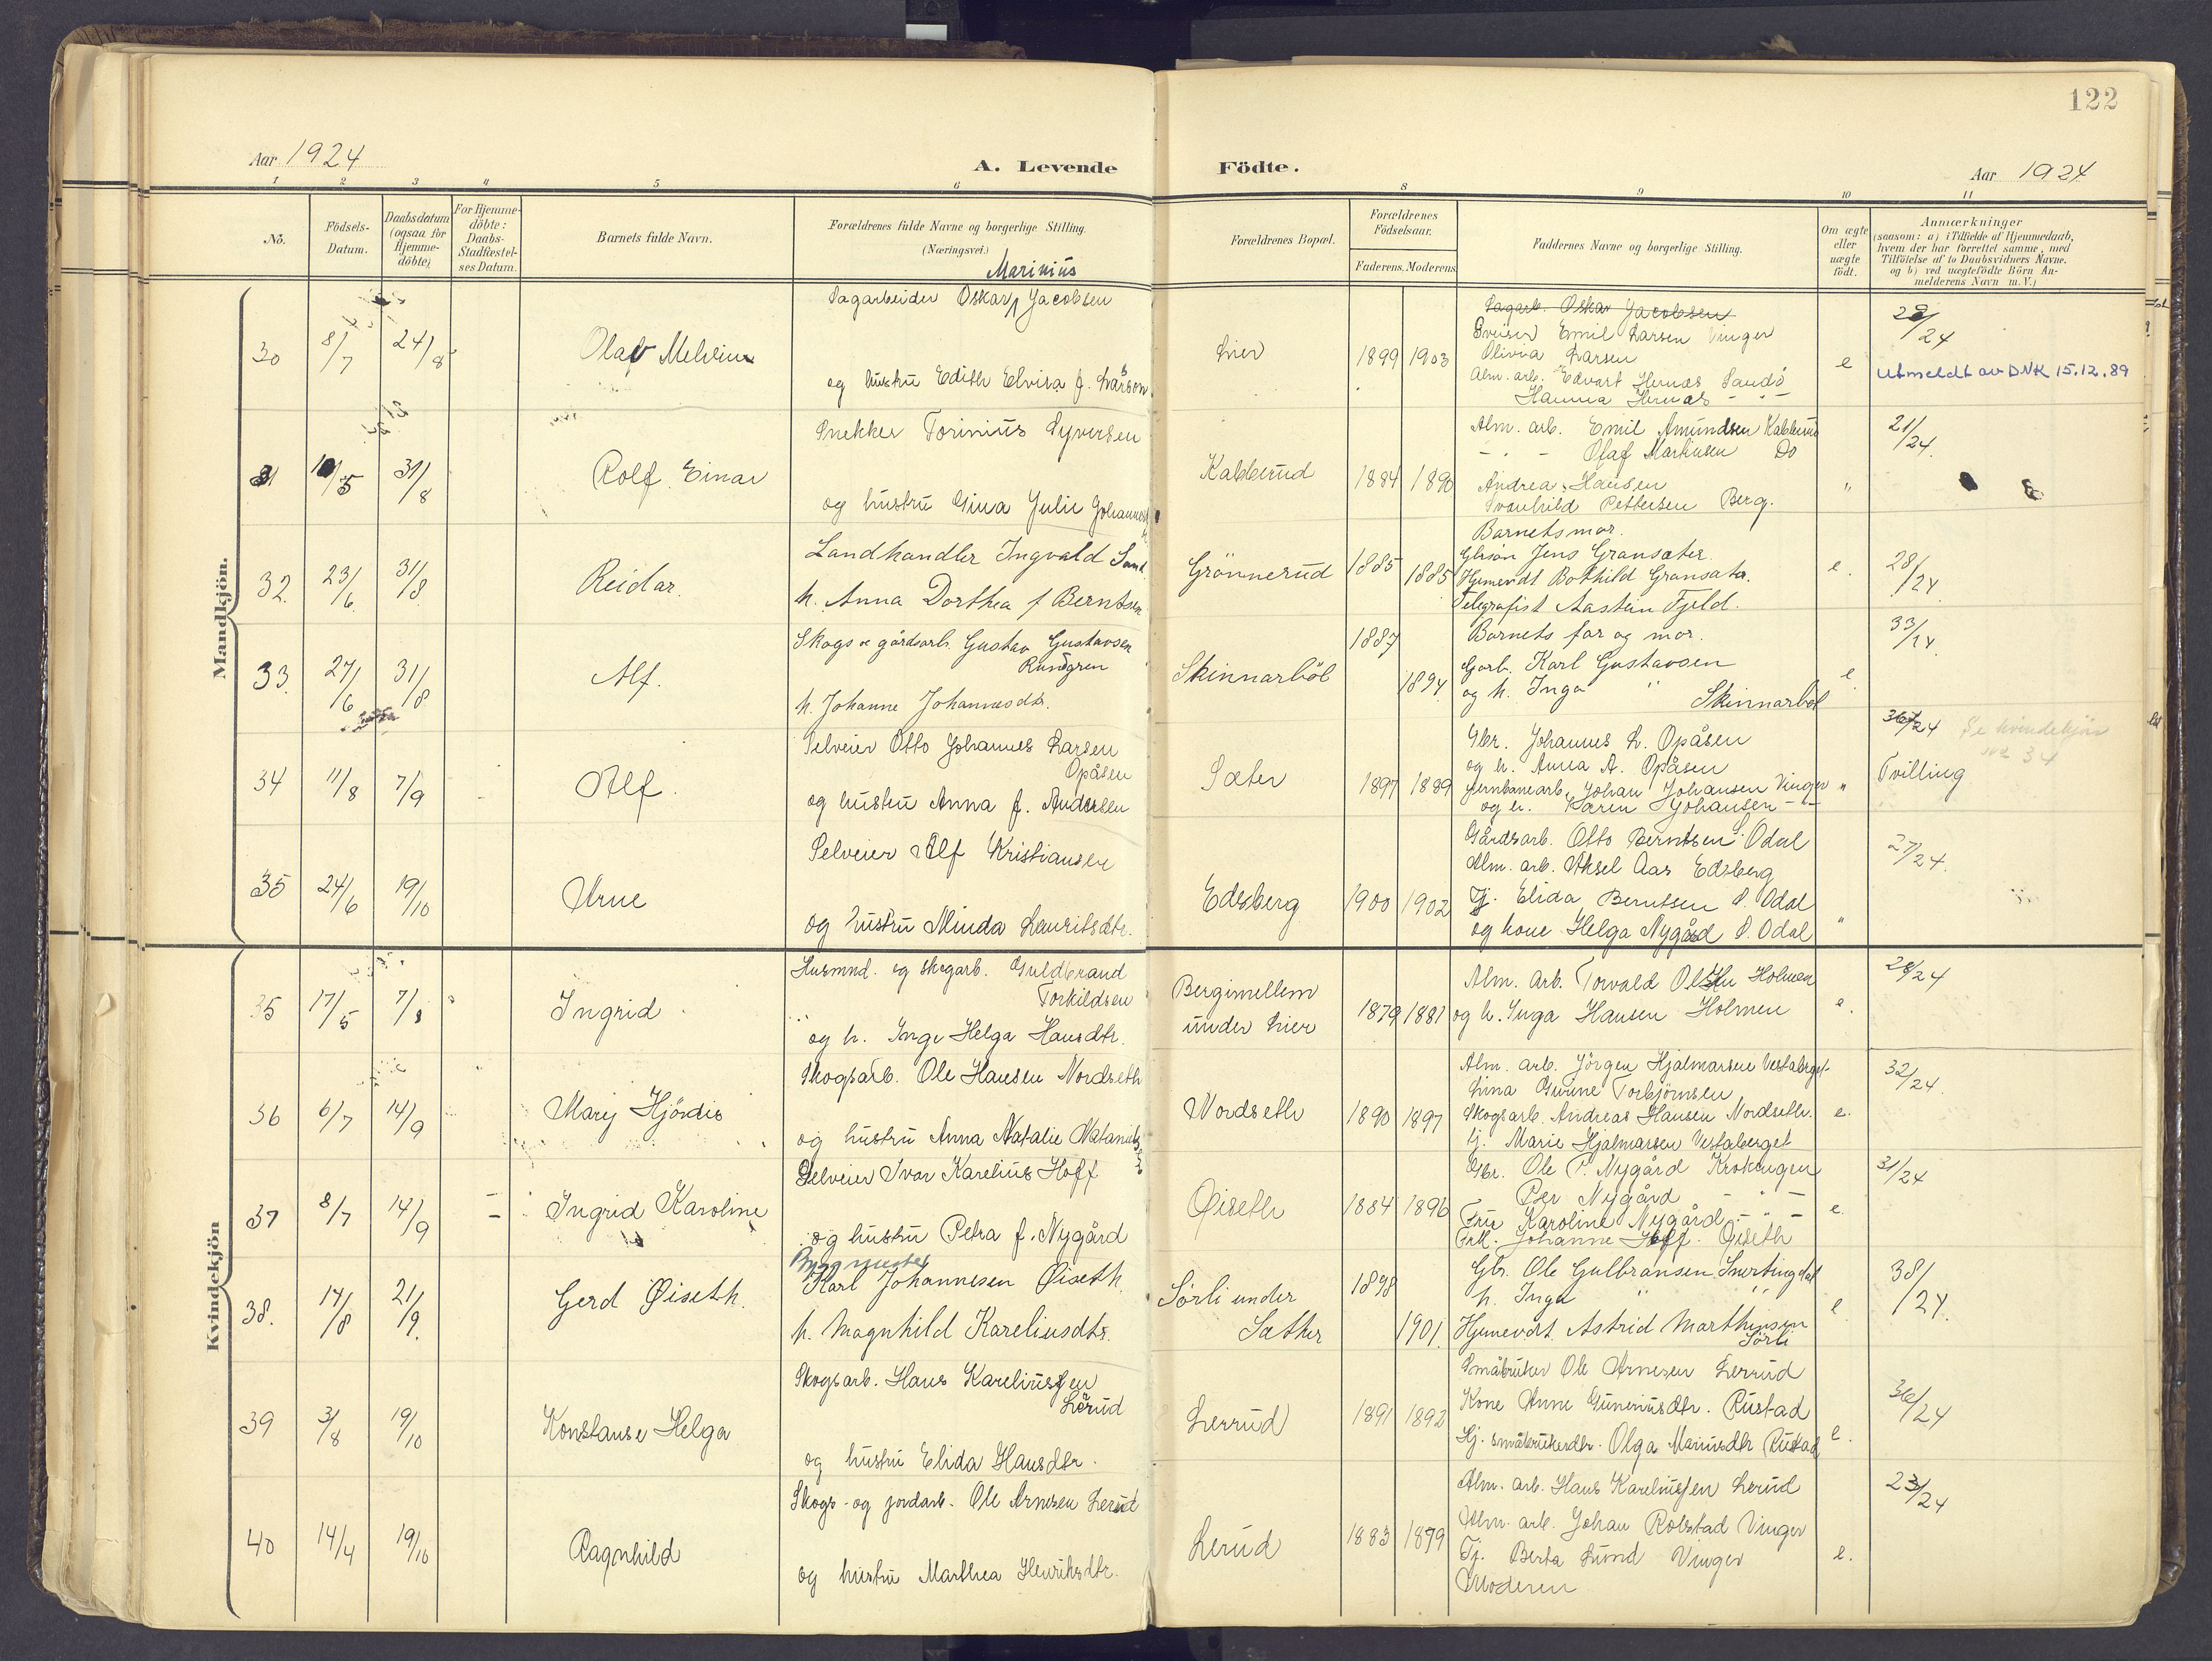 122
Aar 1924
A. Levende
Födte.
Aar 1924
1 2 3 4 5 6 8 9 10 11
No.
Födsels-
Datum.
Daabsdatum
(ogsaa for
Hjemme-
döbte)
For Hjemme-
döbte:
Daabs-
Stadfæstel-
ses Datum.
Barnets fulde Navn.
Forældrenes fulde Navne og borgerlige Stilling.
(Næringsvei.)
Forældrenes Bopæl.
Forældrenes
Födselsaar.
Faderens. Moderens
Faddernes Navne og borgerlige Stilling.
Om ægte
eller
uægte
födt.
Anmærkninger
(saasom: a) i Tilfælde af Hjemmedaab,
hvem der har forrettet samme, med
Tilföielse af to Daabsvidners Navne.
og b) ved uægtefödte Börn An-
melderens Navn m. V.)
Mandkjön.
30 8/7 24/8 Olav Melvin
Marinius
Sagarbeider Oskar Jacobsen
og hustru Edith Elvira f. Larson
Lier 1899 1903
Sagarb. Oskar Jacobsen
Emil Larsen Vinger
Olivia Larsen
Alm. arb. Edvart Hernæs Sandö
Hanna Hernæs - " -
e
29/24
Utmeldt av DNK 15.12.89
31 10/5 31/8 Rolf Einar
Snekker Torinius Syversen
og hustru Gina Julie Johannesd
Kalderud 1884 1890
Alm. arb. Emil Amundsen Kalderud
- " - Olaf Martinsen Do
Andrea Hansen
Svanhild Pettersen Berg.
"
21/24
32. 23/6 31/8 Reidar.
Landhandler Ingvald Sand
h. Anna Dorthea f Berntsen
Grönnerud 1885 1885
Barnets mor.
Jens Gransæter.
Hjemevdt Bothild Gransæter.
Telegrafist Aastein Fjeld.
e.
28/24
33. 27/6 31/8 Alf.
Skogs og gårdsarb. Gustav Gustavsen
Rundgren
h. Johanne Johannesdtr.
Skinnarböl 1887 1894
Barnets far og mor.
Garb. Karl Gustavsen
og h. Inga " Skinnarböl
e.
33/24.
34 11/8 7/9 Alf.
Selveier Otto Johannes Larsen
Opåsen
og hustru Anna f. Andersen
Sæter 1897 1889
Gbr. Johannes L. Opåsen
og h. Anna A. Opåsen
Jernbanearb. Johan Johansen Vinger
og h. Karen Johansen - " -
"
36/24 Se kvindekjön
no 34
Tvilling
35 24/6 19/10 Arne
Selveier Alf Kristiansen
og hustru Minda Lauritsdtr.
Edsberg 1900 1902
Gårdsarb. Otto Berntsen S. Odal
Alm. arb. Aksel Aas Edsberg
Tj. Elida Berntsen S. Odal
og kone Helga Nygård S. Odal
"
27/24
Kvindekjön
35 17/5 7/8 Ingrid
Husmnd. og skogarb. Guldbrand
Torkildsen
og h. Inga Helga Hansdtr.
Bergimellem
under Lier 1879 1881
Alm. arb. Torvald Olsen Holmen
og h. Inga Hansen Holmen
e.
28/24
36 6/7 14/9 Mary Hjördis
Skogsarb. Ole Hansen Nordseth
og hustru Anna Natalie Natanielsd
Nordseth 1890 1897
Alm. arb. Jörgen Hjalmarsen Vestaberget
Lina Torbjörnsen
Skogsarb. Andreas Hansen Nordseth.
tj. Marie Hjalmarsen Vestaberget
e.
32/24
37 8/7 14/9 Ingrid Karoline
Selveier Ivar Karelius Hoff
og hustru Petra f. Nygård
Öiseth 1884 1896
Gbr. Ole P. Nygård Krokengen
Per Nygård - " -
Fru Karoline Nygård - " -
Frk. Johanne Hoff. Öiseth
e.
31/24
38. 14/8 21/9. Gerd Öiseth.
Karl Johannesen Öiseth
h. Magnhild Kareliusdtr.
Sörli under
Sæther 1898 1901.
Gbr. Ole Gulbransen Snertingdal
h. Inga " "
Hjemevdt. Astrid Marthinsen
Sörli
e
38/24.
39 3/8 19/10 Konstanse Helga
Skogsarb. Hans Kareliussen
Lerud
og hustru Elida Hansdtr.
Lerrud 1891 1892
Småbruker Ole Arnesen Lerrud
Kone Anne Guneriusdtr. Rustad
Hj. småbrukerdtr. Olga Mariusdtr Rustad
e.
36/24
40 14/4 19/10 Ragnhild
Skogs- og jordarb. Ole Arnesen Lerud
og hustru Marthea Henriksdtr.
Lerud 1883 1879
Alm. arb. Hans Kareliussen Lerud
Alm. arb. Johan Rolstad Vinger
Tj. Berta Lund Vinger
Moderen
e.
23/24